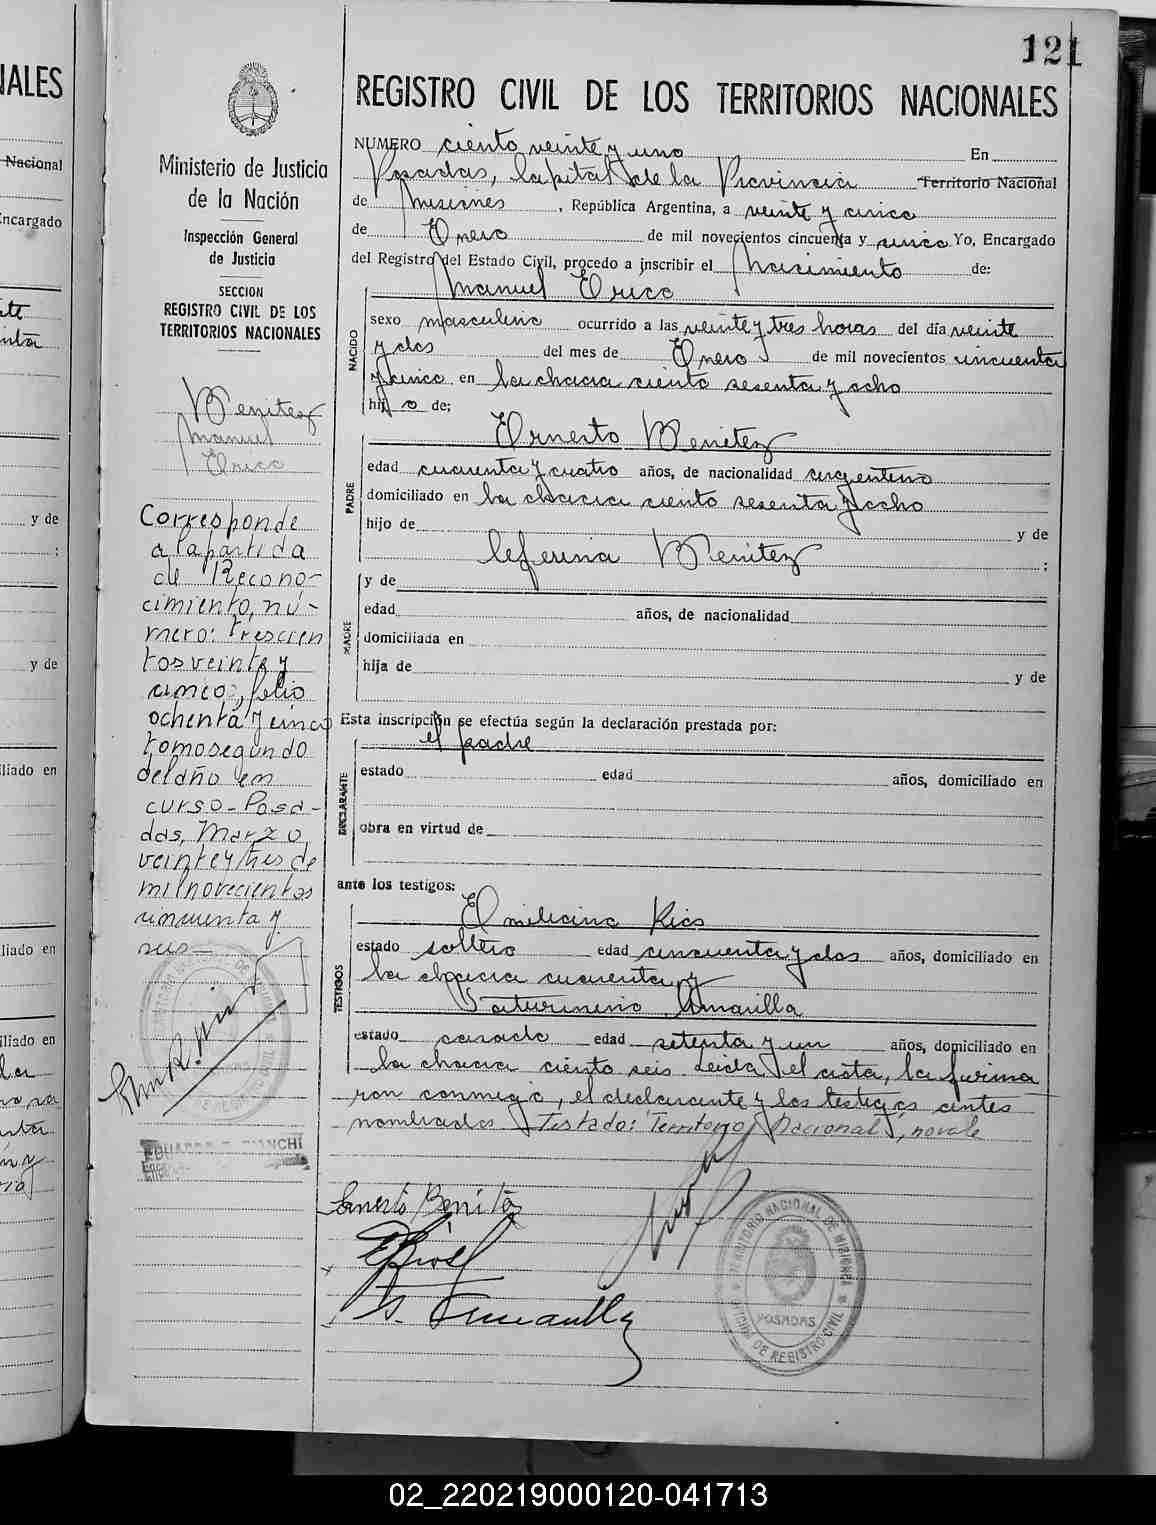 121
REGISTRO CIVIL DE LOS TERRITORIOS NACIONALES
NUMERO ciento veinte y uno En
Posadas, Capital de la Provincia Territorio Nacional
de Misiones, República Argentina, a veinte y cinco
de Enero de mil novecientos cincuenta y cinco Yo, Encargado
del Registro del Estado Civil, procedo a inscribir el Nacimiento de:
Manuel Erico
NACIDO
sexo masculino ocurrido a las veinte y tres horas del día veinte
y dos del mes de Enero de mil novecientos cincuenta
y cinco en la chacra ciento sesenta y ocho
hijo de;
PADRE
Ernesto Benitez
edad cuarenta y cuatro años, de nacionalidad argentino
domiciliado en la chacra ciento sesenta y ocho
hijo de y de
Ceferina Benitez ;
MADRE
y de
edad años, de nacionalidad
domiciliada en
hija de y de
Esta inscripción se efectúa según la declaración prestada por:
el padre
DECLARANTE
estado edad años, domiciliado en
obra en virtud de
ante los testigos:
TESTIGOS
Emiliano Rios
estado soltero edad cincuenta y dos años, domiciliado en
la chacra cuarenta y
Saturnino Amarilla
estado casado edad setenta y un años, domiciliado en
la chacra ciento seis. Leida el acta, la firma
ron conmigo, el declarante y los testigos antes
nombrados. Testado: Territorio Nacional, no vale
Ernesto Benitez
S. Amarilla
TERRITORIO NACIONAL DE MISIONES
POSADAS
OFICINA DE REGISTRO CIVIL
Ministerio de Justicia
de la Nación
Inspección General
de Justicia
SECCION
REGISTRO CIVIL DE LOS
TERRITORIOS NACIONALES
Benitez
Manuel
Erico
Corresponde
a la partida
de Recono-
cimiento, nú-
mero: trescien
tos veinte y
cinco, folio
ochenta y cinco
tomo segundo
del año en
curso - Posa-
das, Marzo
veinte y tres de
mil novecientos
cincuenta y
seis
BIANCHI
NALES
Nacional
Encargado
y de
:
y de
liado en
liado en
iliado en
02_220219000120-041713